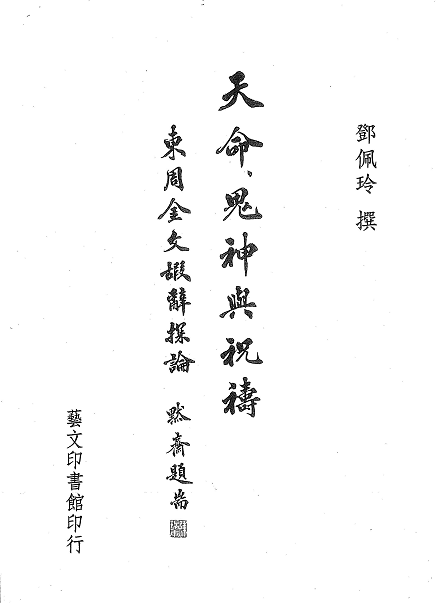 鄧佩玲 撰
天命、鬼神與祝禱
東周金文嘏辭探論 默齋題耑
藝文印書館印行